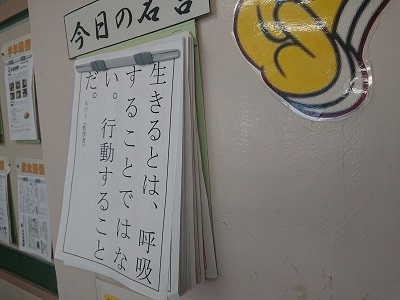 今日の名言
生きるとは、呼吸
することではな
い。行動すること
だ。